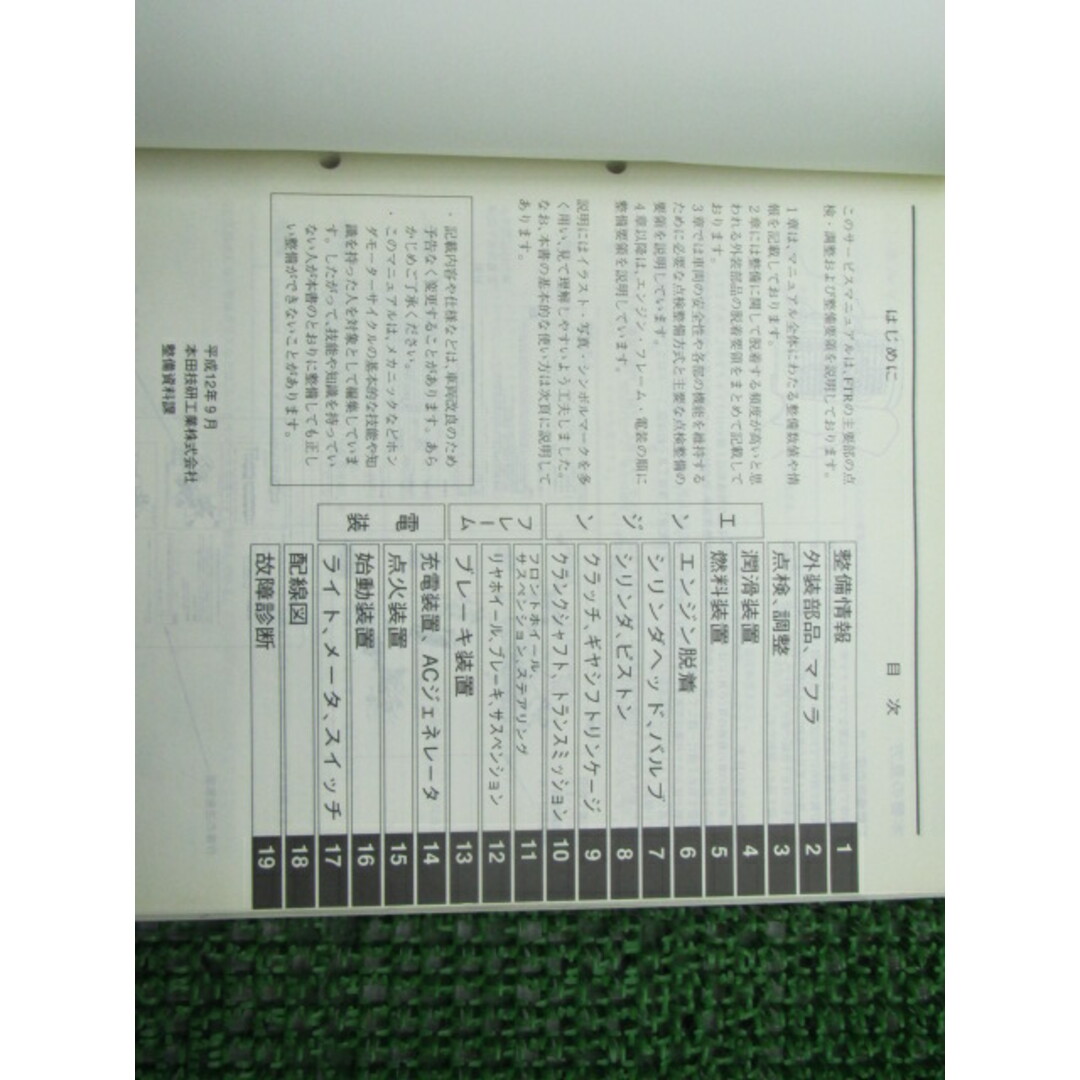 はじめに
このサービスマニュアルは、FTRの主要部の点
検・調整および整備要領を説明しております。
1章は、マニュアル全体にわたる整備数値や情
報を記載しております。
2章には整備に関して脱着する頻度が高いと思
われる外装部品の脱着要領をまとめて記載して
おります。
3章では車両の安全性や各部の機能を維持する
ために必要な点検整備方式と主要な点検整備の
要領を説明しています。
4章以降は、エンジン・フレーム・電装の順に
整備要領を説明しています。
説明にはイラスト・写真・シンボルマークを多
く用い、見て理解しやすいよう工夫しました。
なお、本書の基本的な使い方は次頁に説明して
あります。
・記載内容や仕様などは、車両改良のため
予告なく変更することがあります。あら
かじめご了承ください。
・このマニュアルは、メカニックなどホン
ダモーターサイクルの基本的な技能や知
識を持った人を対象として編集していま
す。したがって、技能や知識を持ってい
ない人が本書のとおりに整備しても正し
い整備ができないことがあります。
平成12年9月
本田技研工業株式会社
整備資料課
目次
整備情報 1
外装部品、マフラ 2
点検、調整 3
エンジン
潤滑装置 4
燃料装置 5
エンジン脱着 6
シリンダヘッド、バルブ 7
シリンダ、ピストン 8
クラッチ、ギヤシフトリンケージ 9
クランクシャフト、トランスミッション 10
フレーム
フロントホイール、
サスペンション、ステアリング 11
リヤホイール、ブレーキ、サスペンション 12
ブレーキ装置 13
電装
充電装置、ACジェネレータ 14
点火装置 15
始動装置 16
ライト、メータ、スイッチ 17
配線図 18
故障診断 19